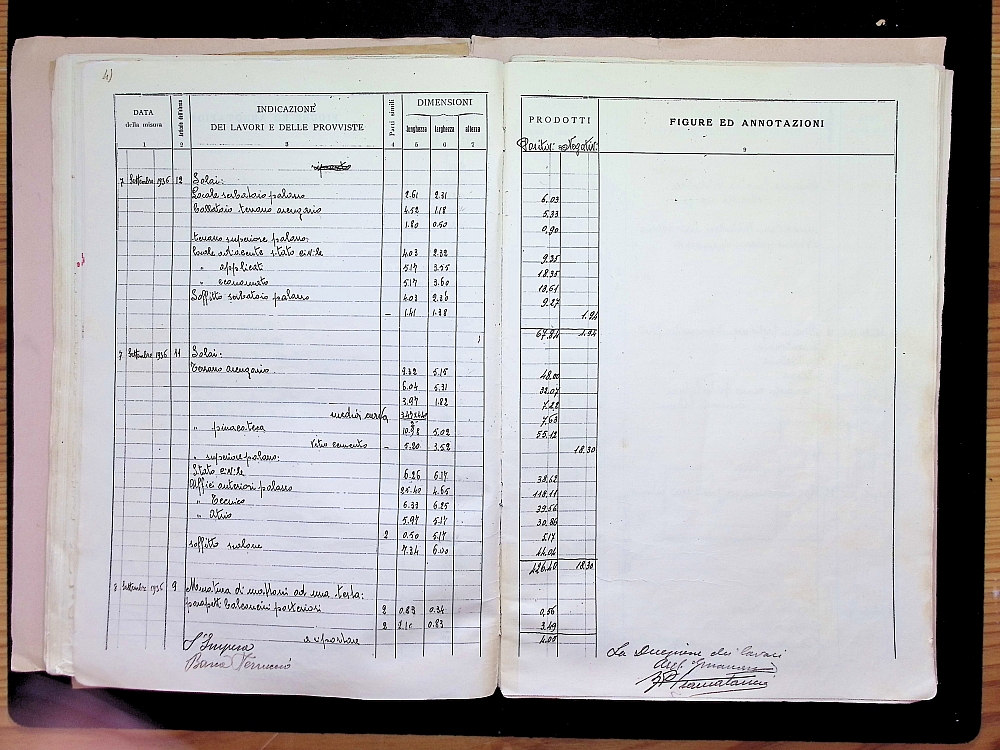 4)
DATA
della misura
Articolo dell'elenco
INDICAZIONE
DEI LAVORI E DELLE PROVVISTE
Parti simili
DIMENSIONI
lunghezza larghezza altezza
PRODOTTI
Positivi Negativi
FIGURE ED ANNOTAZIONI
1 2 3 4 5 6 7 9
riporto
7 Settembre 1936 12 Solai:
Locale serbatoio palazzo 2.61 2.31 6,03
Ballatoio terrazzo arengario 4.52 1.18 5,33
1.80 0.50 0,90
terrazzo superiore palazzo:
locale adiacente stato civile 4.03 2.32 9.35
" applicati 5.17 3.55 18,35
" economato 5.17 3.60 18,61
Soffitto serbatoio palazzo 4.03 2.30 9.27
- 1.41 1.38 1.94
67.84 1.94
7 Settembre 1936 11 Solai:
Terrazzo arengario 9.32 5.15 48,00
6.04 5.31 32,07
3.97 1.82 7,22
7,63
" pinacoteca 10.98 5.02 55,12
Vetro cemento - 5.20 3.52 18.30
" superiore palazzo:
Stato civile 6.26 6.17 38,62
Uffici anteriori palazzo 25.40 4.65 118,11
" Tecnico 6.33 6.25 39,56
" Atrio 5.97 5.17 30,86
2 0.50 5.17 5,17
soffitto salone 7.34 6.00 44,04
426.40 18.30
8 Settembre 1936 9 Muratura di mattoni ad una testa:
parapetti balconcini posteriori 2 0.83 0.34 0,56
2 2.10 0.83 3,49
a riportare 4.09
L'Impresa
La Direzione dei lavori